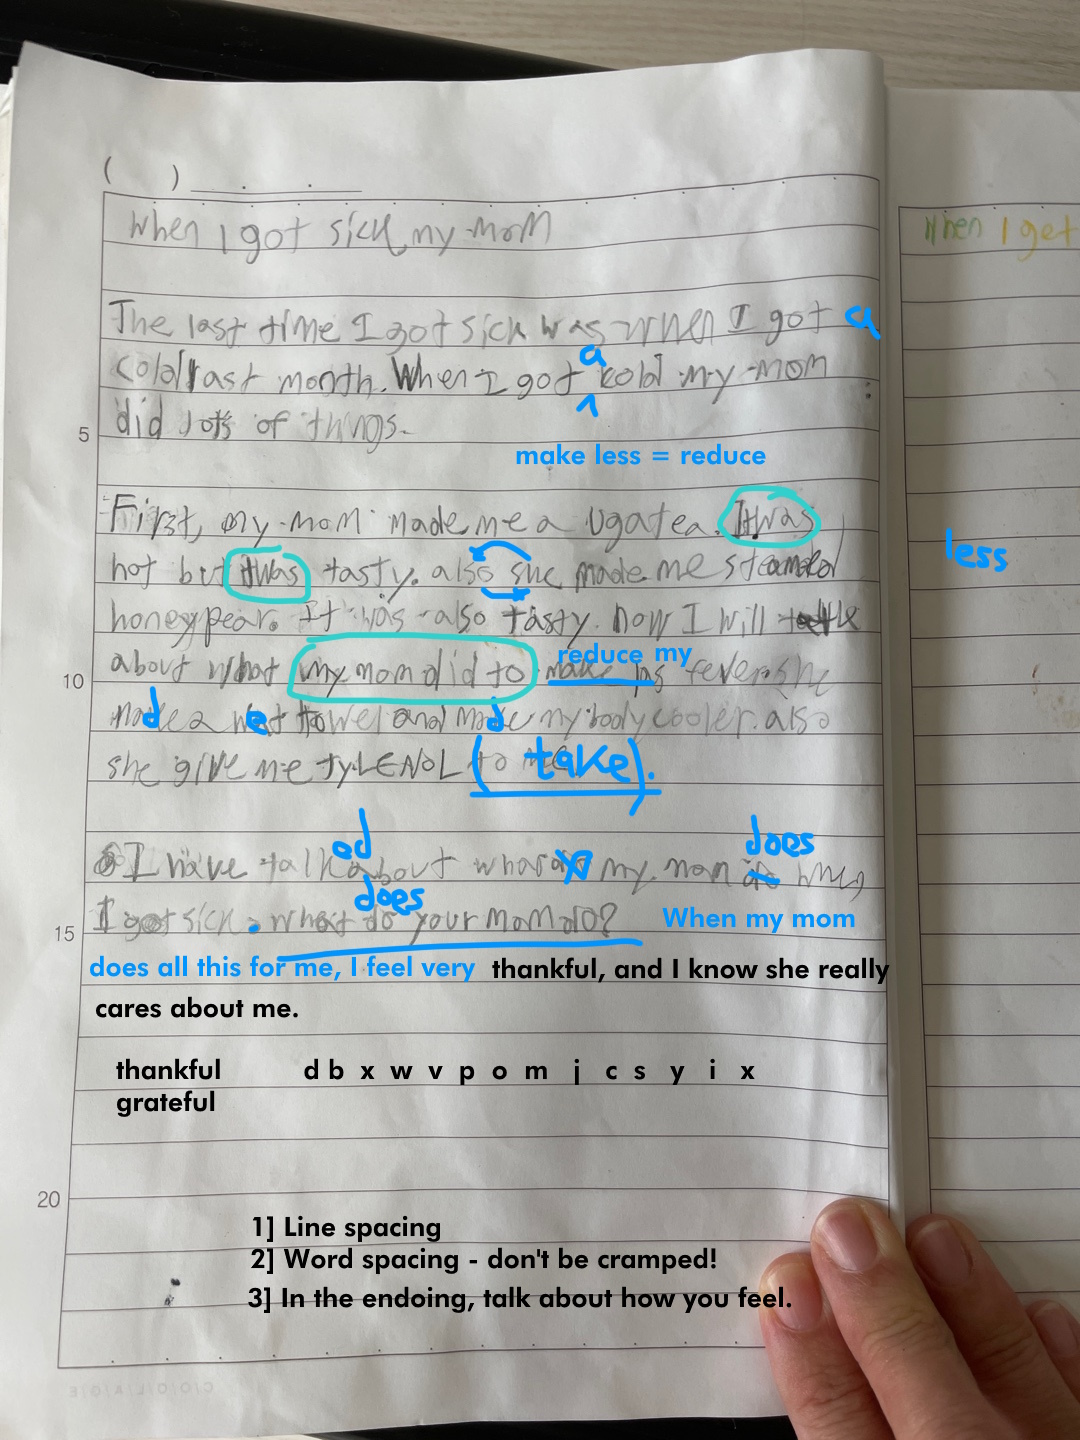 ( ) . .
When I got sick my mom
When I get
The last time I got sick was when I got a
cold last month. When I got a cold my mom
did lots of things.
5
make less = reduce
First, my mom made me a Ugatea. It was
less
hot but it was tasty. also she made me steamed
honeypear. It was also tasty. now I will
reduce my
10
about what my mom did to make fever she
made a wet towel and made my body cooler. also
she give me tyLENOL to (take).
ed
does
I have talk about what my mom when
does
I got sick. what do your mom do? When my mom
15
does all this for me, I feel very thankful, and I know she really
cares about me.
thankful d b x w v p o m j c s y i x
grateful
20
1] Line spacing
2] Word spacing - don't be cramped!
3] In the endoing, talk about how you feel.